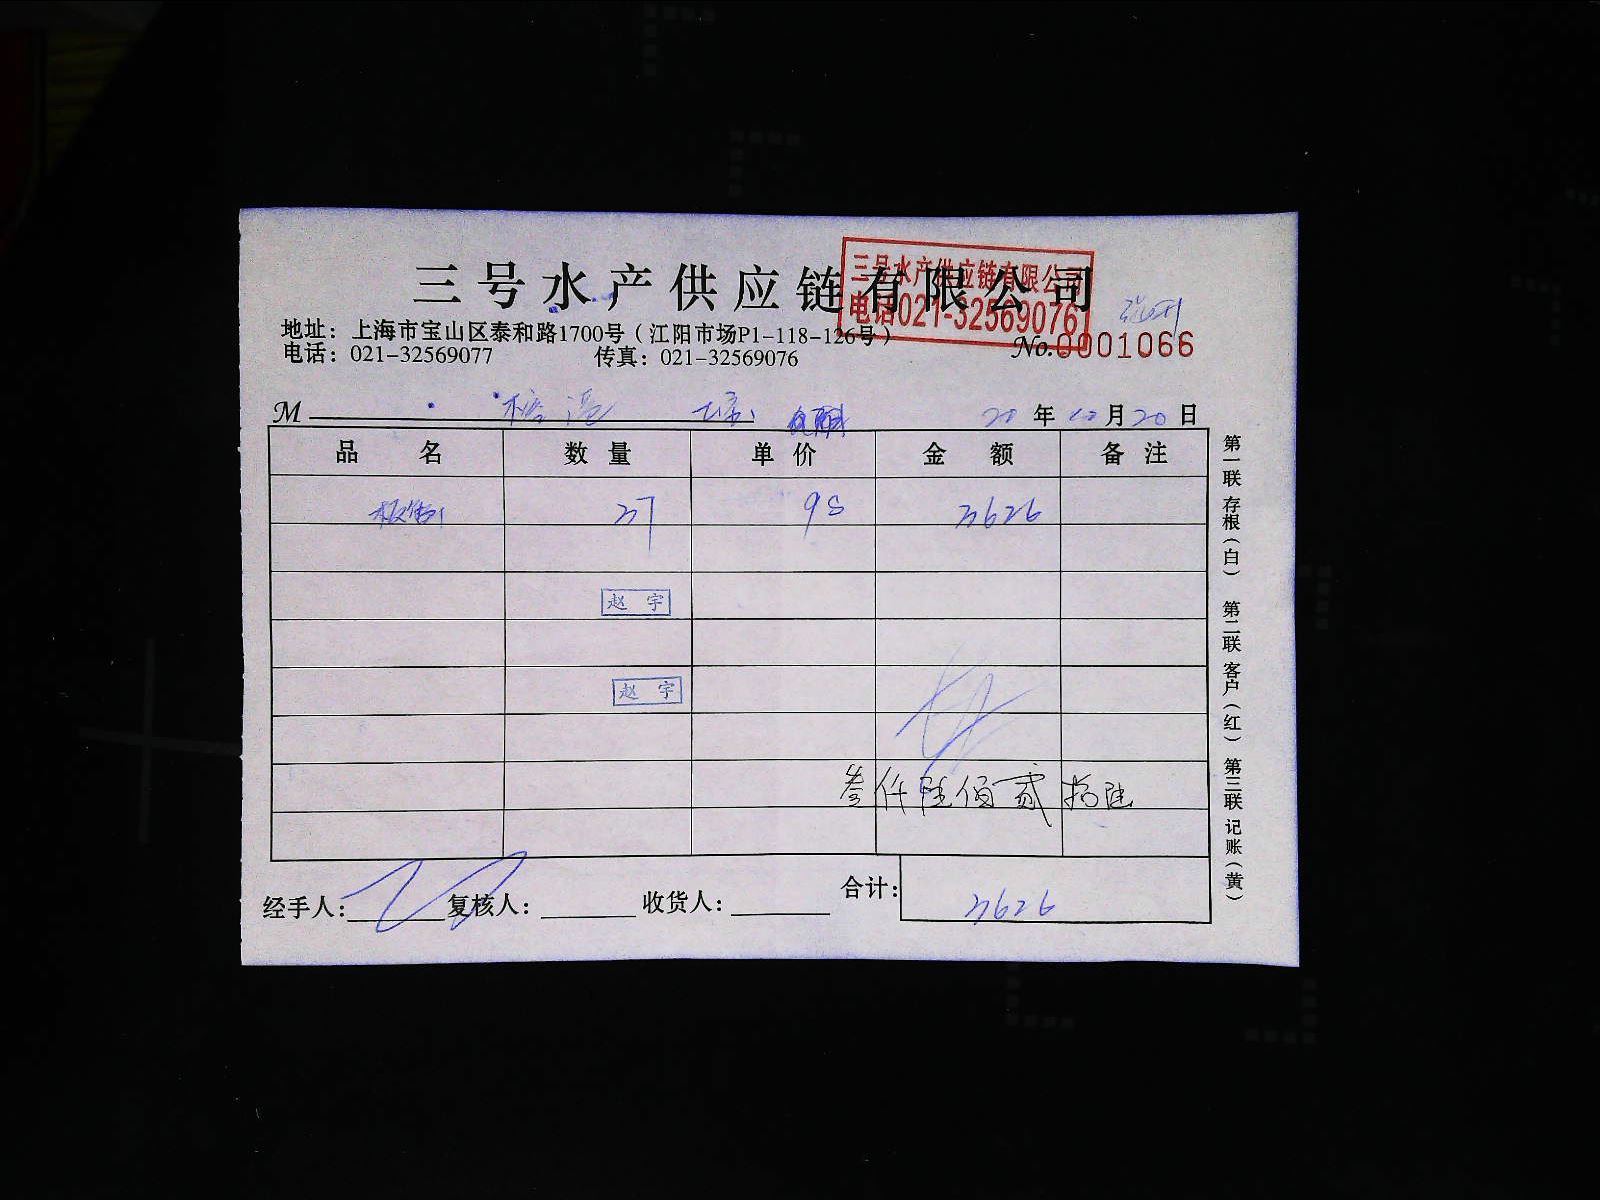 三号水产供应链有限公司
三号水产供应链有限公司
电话021-32569076
地址：上海市宝山区泰和路1700号（江阳市场P1-118-126号）
电话：021-32569077 传真：021-32569076
No.0001066
M
20年10月20日
品名 数量 单价 金额 备注
37 98 3626
赵宇
赵宇
叁仟陆佰贰拾陆
经手人： 复核人： 收货人： 合计： 3626
第一联存根（白） 第二联客户（红） 第三联记账（黄）